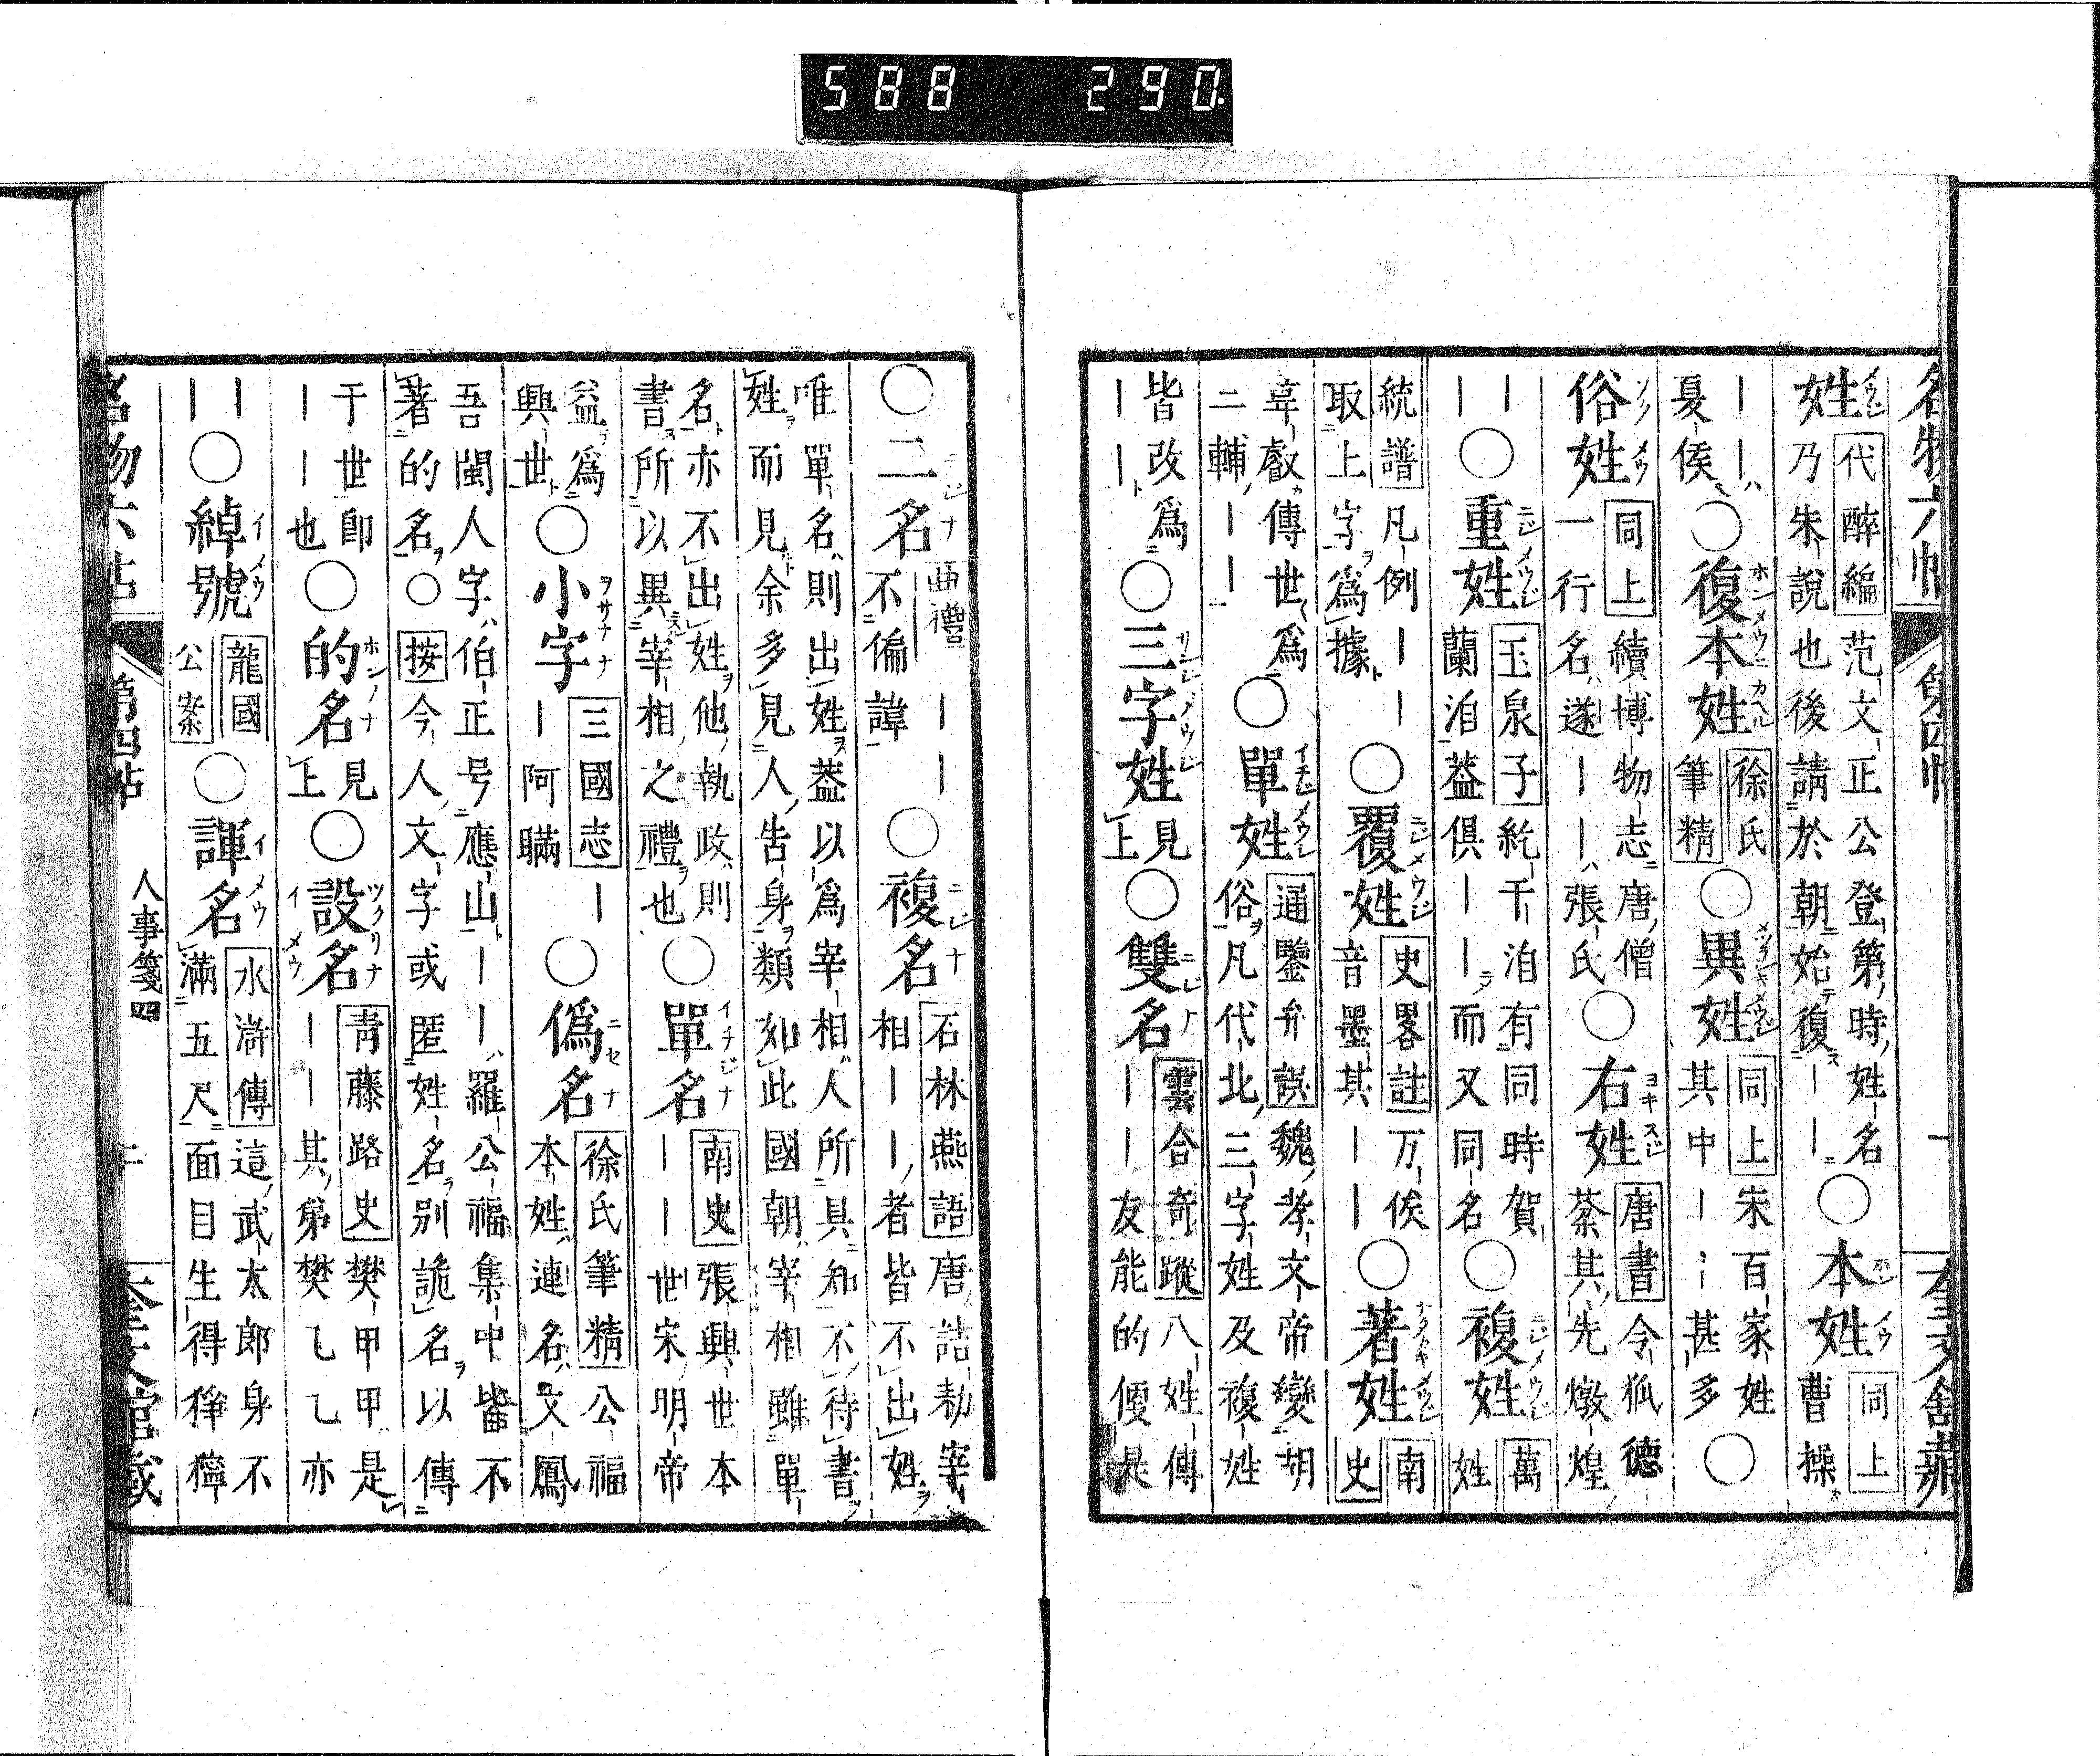 588 290
名物六帖 第四帖 奎文館藏
姓 代醉編 范文正公登第時姓名
乃朱說也後請於朝始復一一 ○本姓 同上 曹操
一一夏侯 ○復本姓 徐氏筆精 ○異姓 同上 朱百家姓其中一一甚多 ○
俗姓 同上 續博物志唐僧一行名遂一一張氏 ○右姓 唐書 令狐德棻其先燉煌
一一 ○重姓 玉泉子 紇干洎有同時賀蘭洎益俱一一而又同名 ○複姓 萬姓
統譜 凡例一一取上字爲據 ○覆姓 史畧註 万俟音墨其一一 ○著姓 南史
韋叡傳世爲二輔一一 ○單姓 通鑒弁誤 魏孝文帝變胡俗凡代北三字姓及複姓
皆改爲一一 ○三字姓 見上 ○雙名 雲合奇蹤 八姓傳一一友能的便是
○二名 曲禮 一一不偏諱 ○複名 石林燕語 唐誥勅宰相一一者皆不出姓
唯單名則出姓葢以爲宰相人所具知不待書姓而見余多見人告身類如此國朝宰相雖單
名亦不出姓他執政則書所以異宰相之禮也 ○單名 南史 張興世本一一世宋明帝
益爲興世 ○小字 三國志 一阿瞞 ○僞名 徐氏筆精 公福本姓連名文鳳
吾閩人字伯正号應山一一羅公福集中皆不著的名○按今人文字或匿姓名别詭名以傳
于世即一一也 ○的名 見上 ○設名 青藤路史 樊甲甲是一一其弟樊乙乙亦
一一 ○綽號 龍國公案 ○諢名 水滸傳 這武太郎身不滿五尺面目生得猙獰
名物六帖 第四帖 人事箋四 奎文館藏